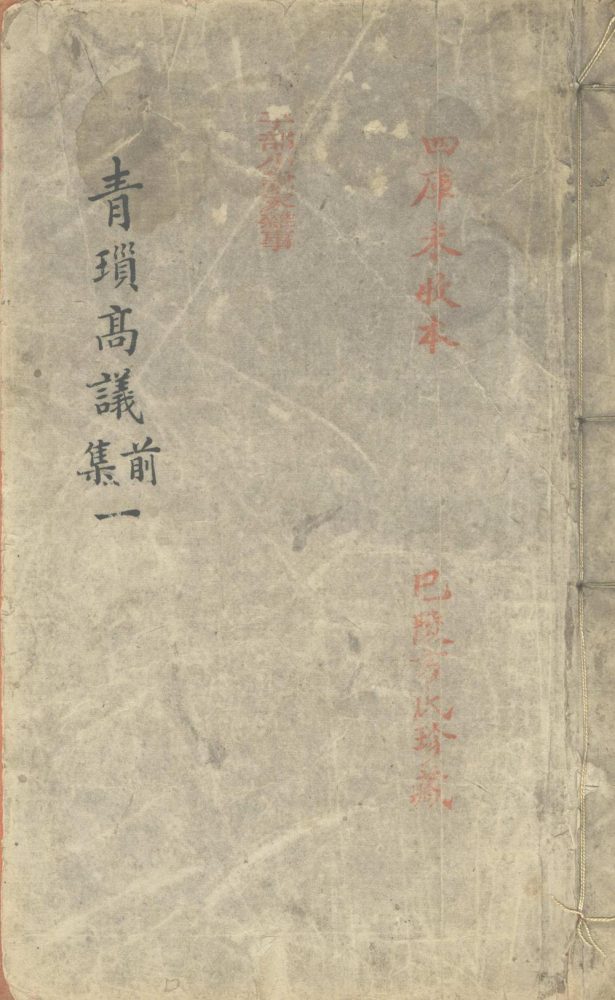 四庫未收本
巴陵方氏珍藏
子部小說家雜事
青瑣高議前集一